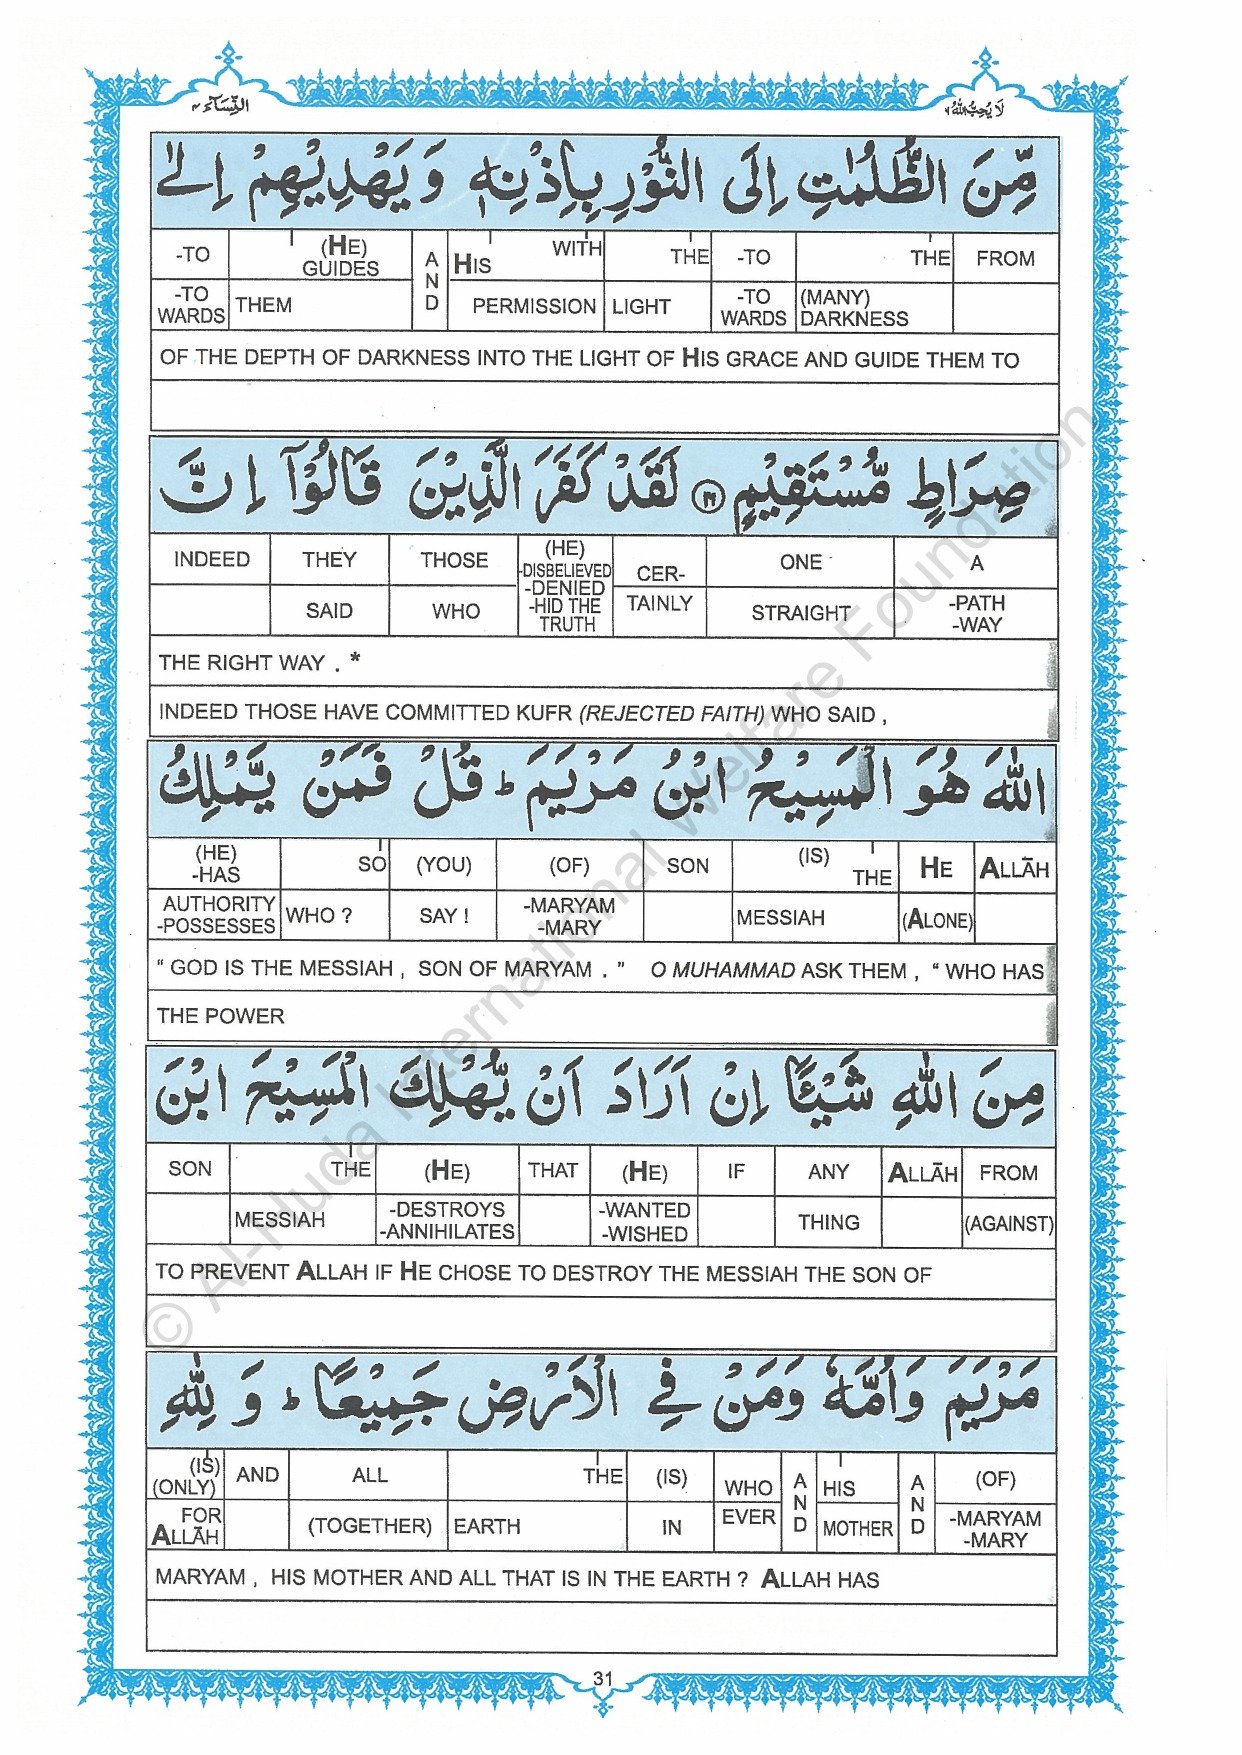 لَا يُحِبُّ اللّٰهُ ٦
النِّسَآء ٤
مِّنَ الظُّلُمٰتِ اِلَى النُّوْرِ بِاِذْنِهٖ وَ يَهْدِيْهِمْ اِلٰى
-TO (HE) A HIS WITH THE -TO THE FROM
GUIDES N
-TO WARDS THEM D PERMISSION LIGHT -TO WARDS (MANY) DARKNESS
OF THE DEPTH OF DARKNESS INTO THE LIGHT OF HIS GRACE AND GUIDE THEM TO
صِرَاطٍ مُّسْتَقِيْمٍ ١٦ لَقَدْ كَفَرَ الَّذِيْنَ قَالُوْۤا اِنَّ
INDEED THEY THOSE (HE) -DISBELIEVED CER- ONE A
SAID WHO -DENIED -HID THE TRUTH TAINLY STRAIGHT -PATH -WAY
THE RIGHT WAY . *
INDEED THOSE HAVE COMMITTED KUFR (REJECTED FAITH) WHO SAID ,
اللّٰهَ هُوَ الْمَسِيْحُ ابْنُ مَرْيَمَ ؕ قُلْ فَمَنْ يَّمْلِكُ
(HE) -HAS SO (YOU) (OF) SON (IS) THE HE ALLĀH
AUTHORITY -POSSESSES WHO ? SAY ! -MARYAM -MARY MESSIAH (ALONE)
“ GOD IS THE MESSIAH , SON OF MARYAM . ” O MUHAMMAD ASK THEM , “ WHO HAS
THE POWER
مِنَ اللّٰهِ شَيْـًٔا اِنْ اَرَادَ اَنْ يُّهْلِكَ الْمَسِيْحَ ابْنَ
SON THE (HE) THAT (HE) IF ANY ALLĀH FROM
MESSIAH -DESTROYS -ANNIHILATES -WANTED -WISHED THING (AGAINST)
TO PREVENT ALLAH IF HE CHOSE TO DESTROY THE MESSIAH THE SON OF
مَرْيَمَ وَاُمَّهٗ وَمَنْ فِي الْاَرْضِ جَمِيْعًا ؕ وَ لِلّٰهِ
(IS) (ONLY) AND ALL THE (IS) WHO AND HIS AND (OF)
FOR ALLĀH (TOGETHER) EARTH IN EVER MOTHER -MARYAM -MARY
MARYAM , HIS MOTHER AND ALL THAT IS IN THE EARTH ? ALLAH HAS
31
© Al-Huda International Welfare Foundation